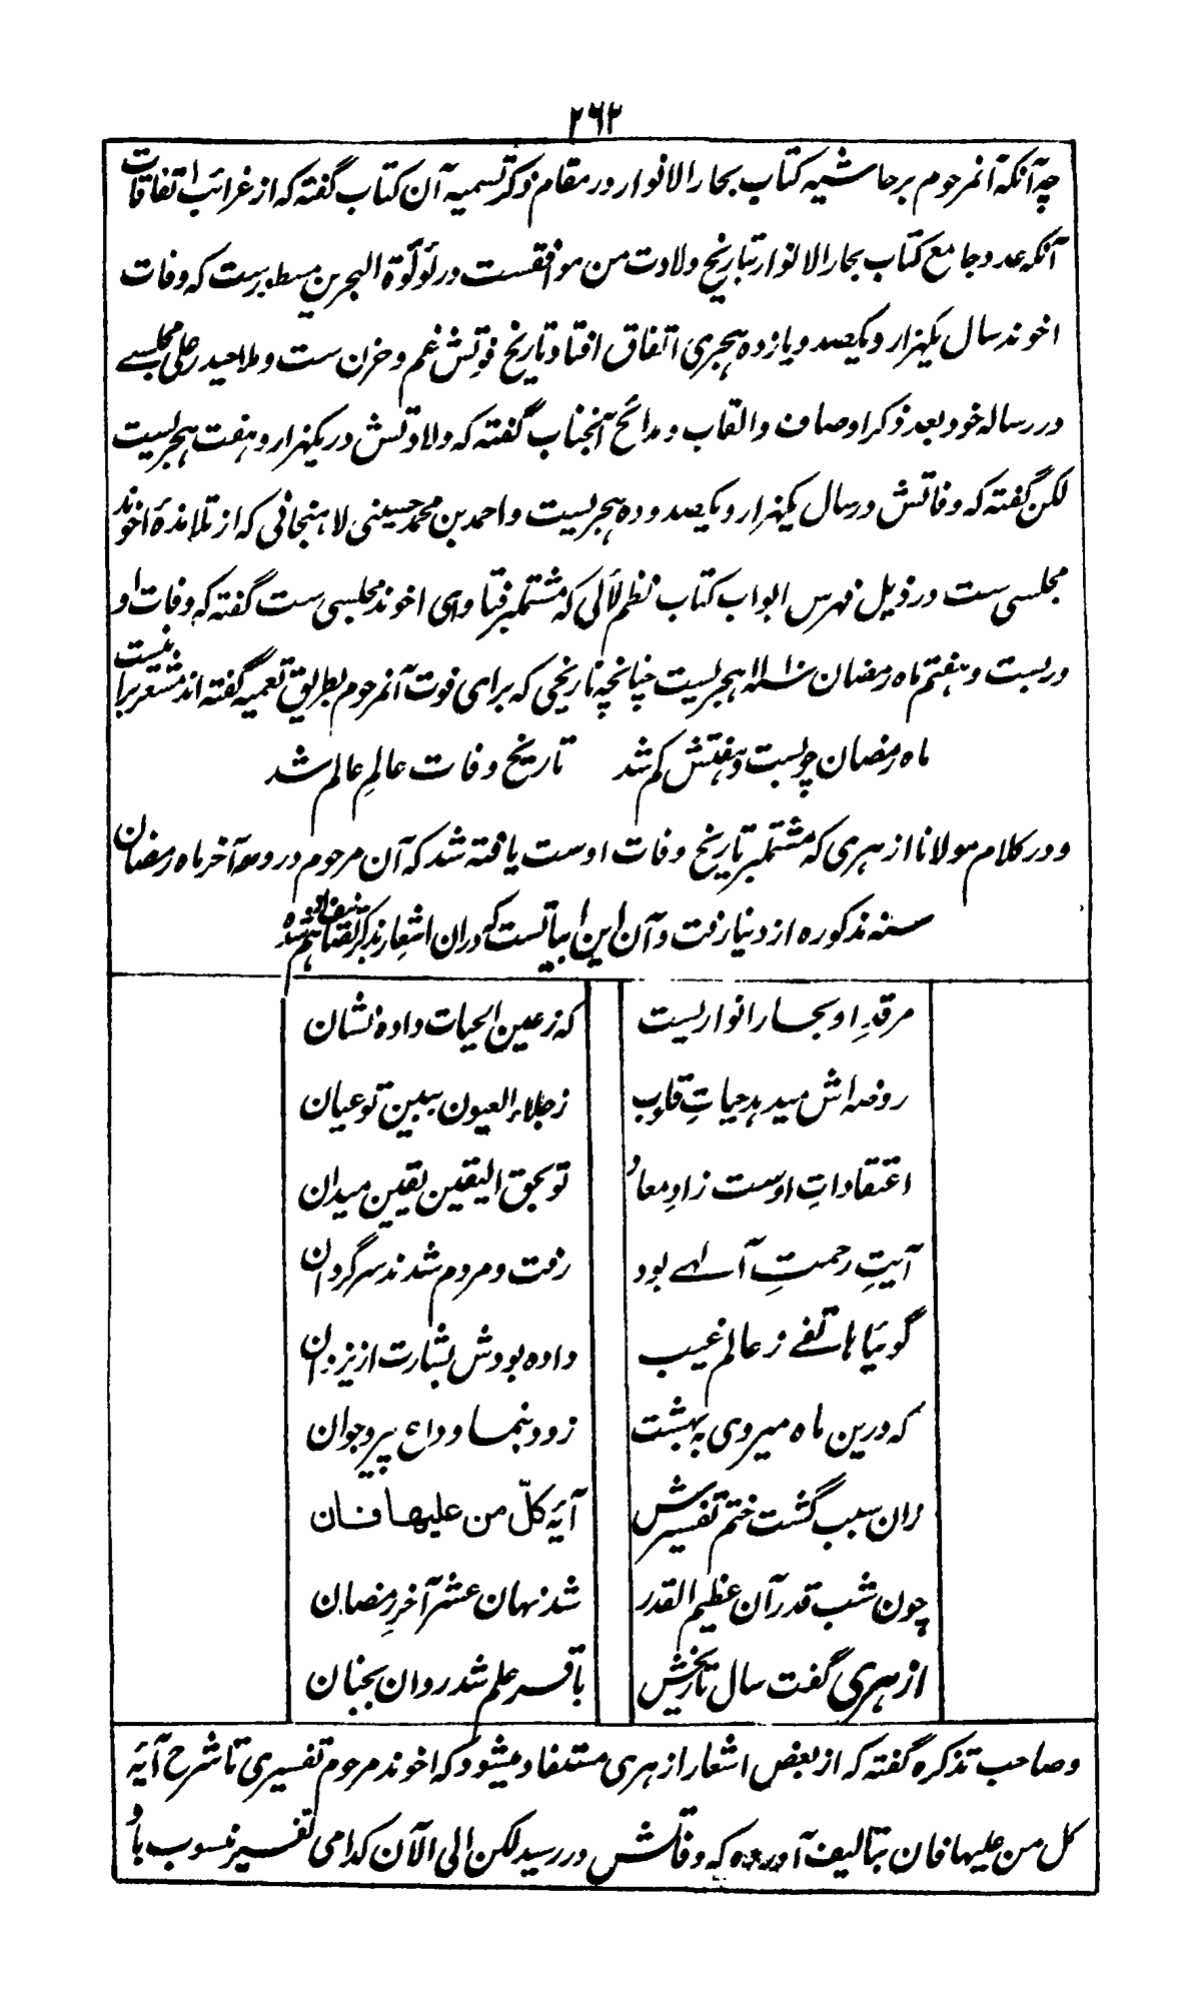 ۲۶۲
چه آنکه آنمرحوم بر حاشیه کتاب بحار الانوار در مقام ذکر تسمیه آن کتاب گفته که از غرائب اتفاقات
آنکه عدد جامع کتاب بحار الانوار بتاریخ ولادت من موافقست در لؤلؤة البحرین مسطورست که وفات
اخوند سال یکهزار و یکصد و یازده هجری اتفاق افتاد تاریخ فوتش غم و حزن ست و ملا حیدر علی مجلسے
در رساله خود بعد ذکر اوصاف و القاب و مدائح آنجناب گفته که ولادتش در یکهزار و هفت هجریست
لکن گفته که وفاتش در سال یکهزار و یکصد و ده هجریست و احمد بن محمد حسینی لاهنجانی که از تلامذهٔ اخوند
مجلسی ست در ذیل فهرس ابواب کتاب نظم لآلی که مشتملبر فتاوای اخوند مجلسی ست گفته که وفات او
در بست و هفتم ماه رمضان سنه ۱۱۱۰ هجریست چنانچه تاریخی که برای فوت آنمرحوم بطریق تعمیه گفته اند مشعر براینست
ماه رمضان چو بست و هفتش کم شد تاریخ وفات عالمِ عالم شد
و در کلام مولانا ازهری که مشتملبر تاریخ وفات اوست یافته شد که آن مرحوم در دههٔ آخر ماه رمضان
سنه مذکوره از دنیا رفت و آن این ابیاتست که دران اشعار بذکر تصانیف او هم شده
مرقدِ او بحار انواریست که ز عین الحیات داده نشان
روضه اش میدهد حیاتِ قلوب ز جلاء العیون ببین تو عیان
اعتقاداتِ اوست زادِ معاد تو بحق الیقین یقین میدان
آیتِ رحمتِ آلهے بود رفت و مردم شدند سرگردان
گوئیا هاتفے ز عالم غیب داده بودش بشارت از یزدان
که درین ماه میروی به بهشت زود بنما وداع پیر و جوان
زان سبب گشت ختم تفسیرش آیه کلّ من علیها فان
چون شب قدر آن عظیم القدر شد نهان عشر آخرِ رمضان
ازهری گفت سال تاریخش باقر علم شد روان بجنان
و صاحب تذکره گفته که از بعض اشعار ازهری مستفاد میشود که اخوند مرحوم تفسیری تا شرح آیهٔ
کل من علیها فان بتالیف آورده که وفاتش در رسید لکن الی الآن کدامی تفسیر منسوب باو